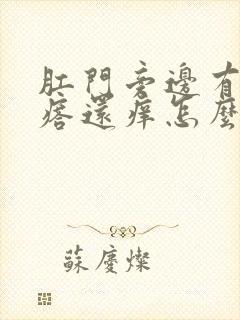 肛門旁邊有
痞還痒怎麼
蘇慶燦